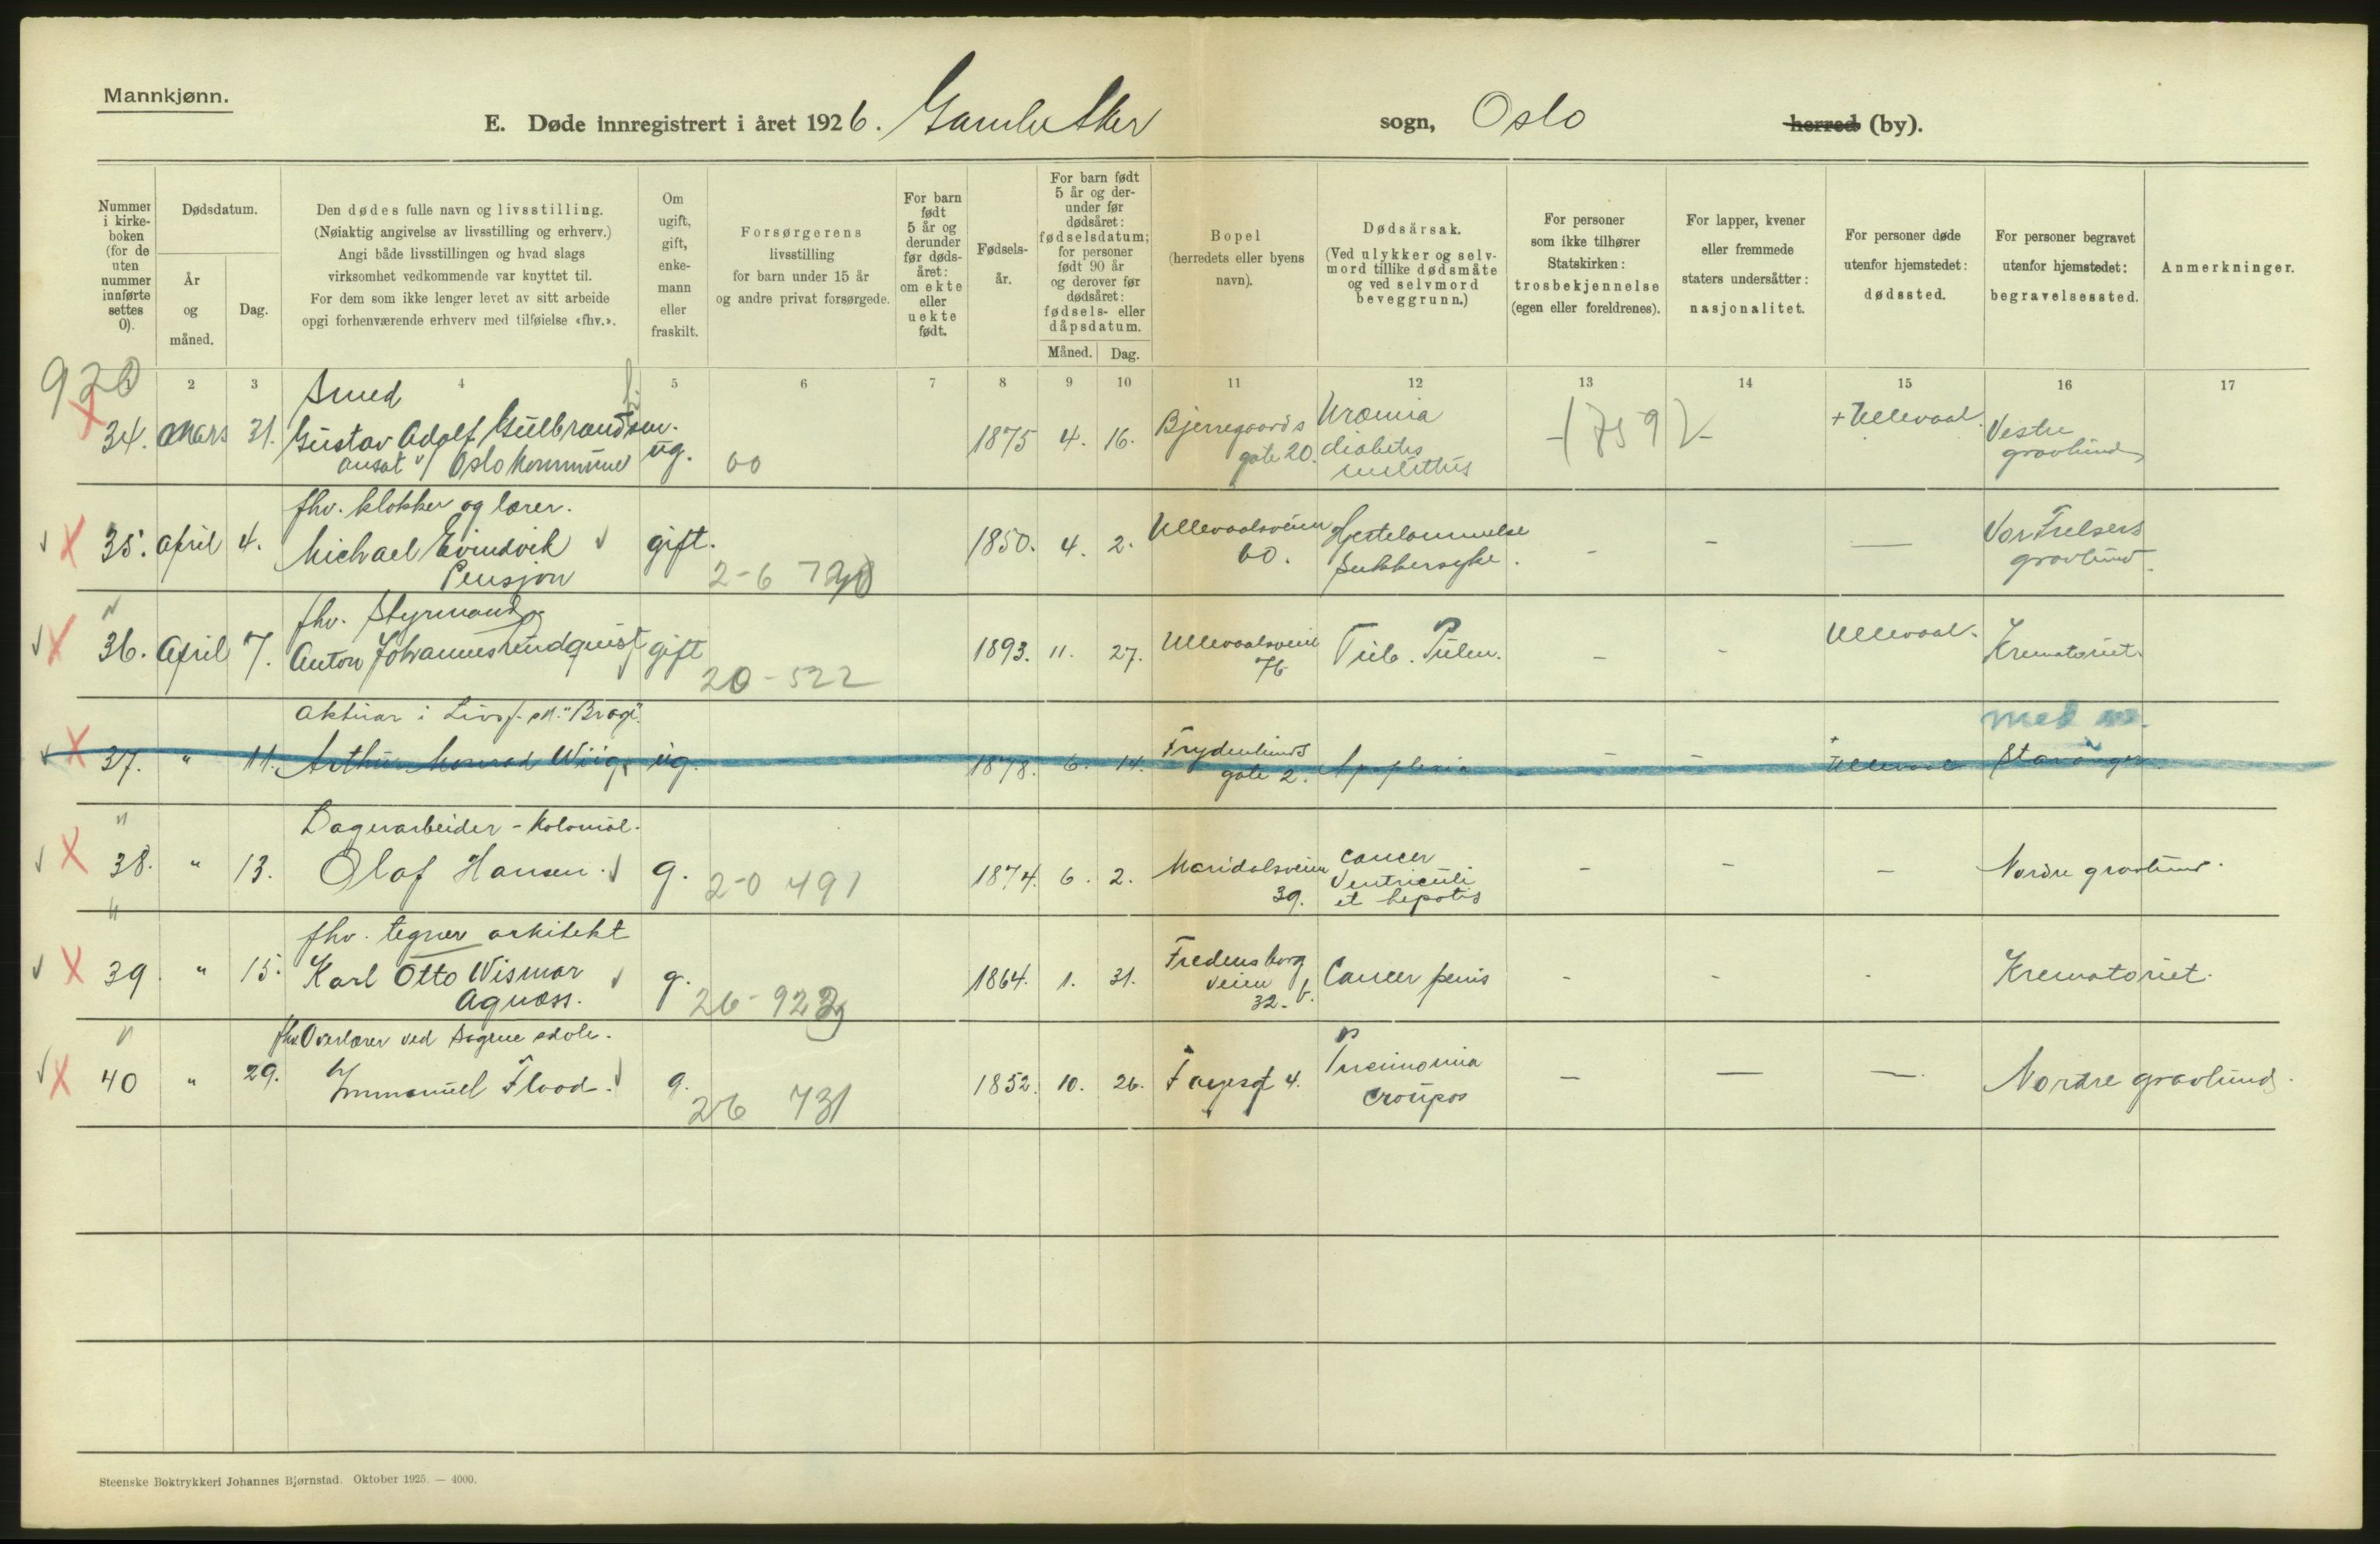 Mannkjønn.
E. Døde innregistrert i året 1926. Gamle Aker sogn, Oslo herred (by).
Nummer i kirkeboken (for de uten nummer innførte settes 0).
Dødsdatum.
År og måned.
Dag.
Den dødes fulle navn og livsstilling.
(Nøiaktig angivelse av livsstilling og erhverv.)
Angi både livsstillingen og hvad slags
virksomhet vedkommende var knyttet til.
For dem som ikke lenger levet av sitt arbeide
opgi forhenværende erhverv med tilføielse «fhv.».
Om ugift, gift, enkemann eller fraskilt.
Forsørgerens
livsstilling
for barn under 15 år
og andre privat forsørgede.
For barn født 5 år og derunder før dødsåret: om ekte eller uekte født.
Fødselsår.
For barn født 5 år og derunder før dødsåret: fødselsdatum; for personer født 90 år og derover før dødsåret: fødsels- eller dåpsdatum.
Måned. Dag.
Bopel
(herredets eller byens
navn).
Dødsårsak.
(Ved ulykker og selvmord tillike dødsmåte og ved selvmord beveggrunn.)
For personer
som ikke tilhører
Statskirken:
trosbekjennelse
(egen eller foreldrenes).
For lapper, kvener
eller fremmede
staters undersåtter:
nasjonalitet.
For personer døde
utenfor hjemstedet:
dødssted.
For personer begravet
utenfor hjemstedet:
begravelsessted.
Anmerkninger.
2 3 4 5 6 7 8 9 10 11 12 13 14 15 16 17
920
Smed
34. Mars 31. Gustav Adolf Gulbrandsen. ug. 00 1875 4. 16. Bjerregaards gate 20. Uræmia diabetes mellitus + Ullevaal. Vestre gravlund
ansat v/ Oslo kommune
fhv. klokker og lærer.
35. April 4. Michael Evindvik gift. 1850. 4. 2. Ullevaalsveien 60. Hjertelammelse Sukkersyke. - - — Vor Frelsers gravlund.
Pensjon 2-6
fhv. Styrmand
36. April 7. Anton Johannes Lundquist gift 20-522 1893. 11. 27. Ullevaalsveien 76 Tub. Pulm. - - Ullevaal. Krematoriet.
Aktuar i Livsf. "Brage".
37. " 11. Arthur Monrad Wiig, ug. 1878. 6. 14. Frydenlunds gate 2. Apoplexia - - + Ullevaal Stavanger.
Lagerarbeider - Kolonial.
38. " 13. Olaf Hansen. g. 20 491 1874. 6. 2. Maridalsveien 39. Cancer Ventriculi et hepatis - - - Nordre gravlund.
fhv. tegner arkitekt
39. " 15. Karl Otto Wismar Agnæss. g. 26-92 1864. 1. 31. Fredensborg veien 32. b. Cancer penis - - - Krematoriet.
fhv. Overlærer ved Sagene skole.
40 " 29. Immanuel Flood. g. 26 731 1852. 10. 26. Fayesgt 4. Pneumonia crouposa — — — Nordre gravlund.
Steenske Boktrykkeri Johannes Bjørnstad. Oktober 1925. — 4000.